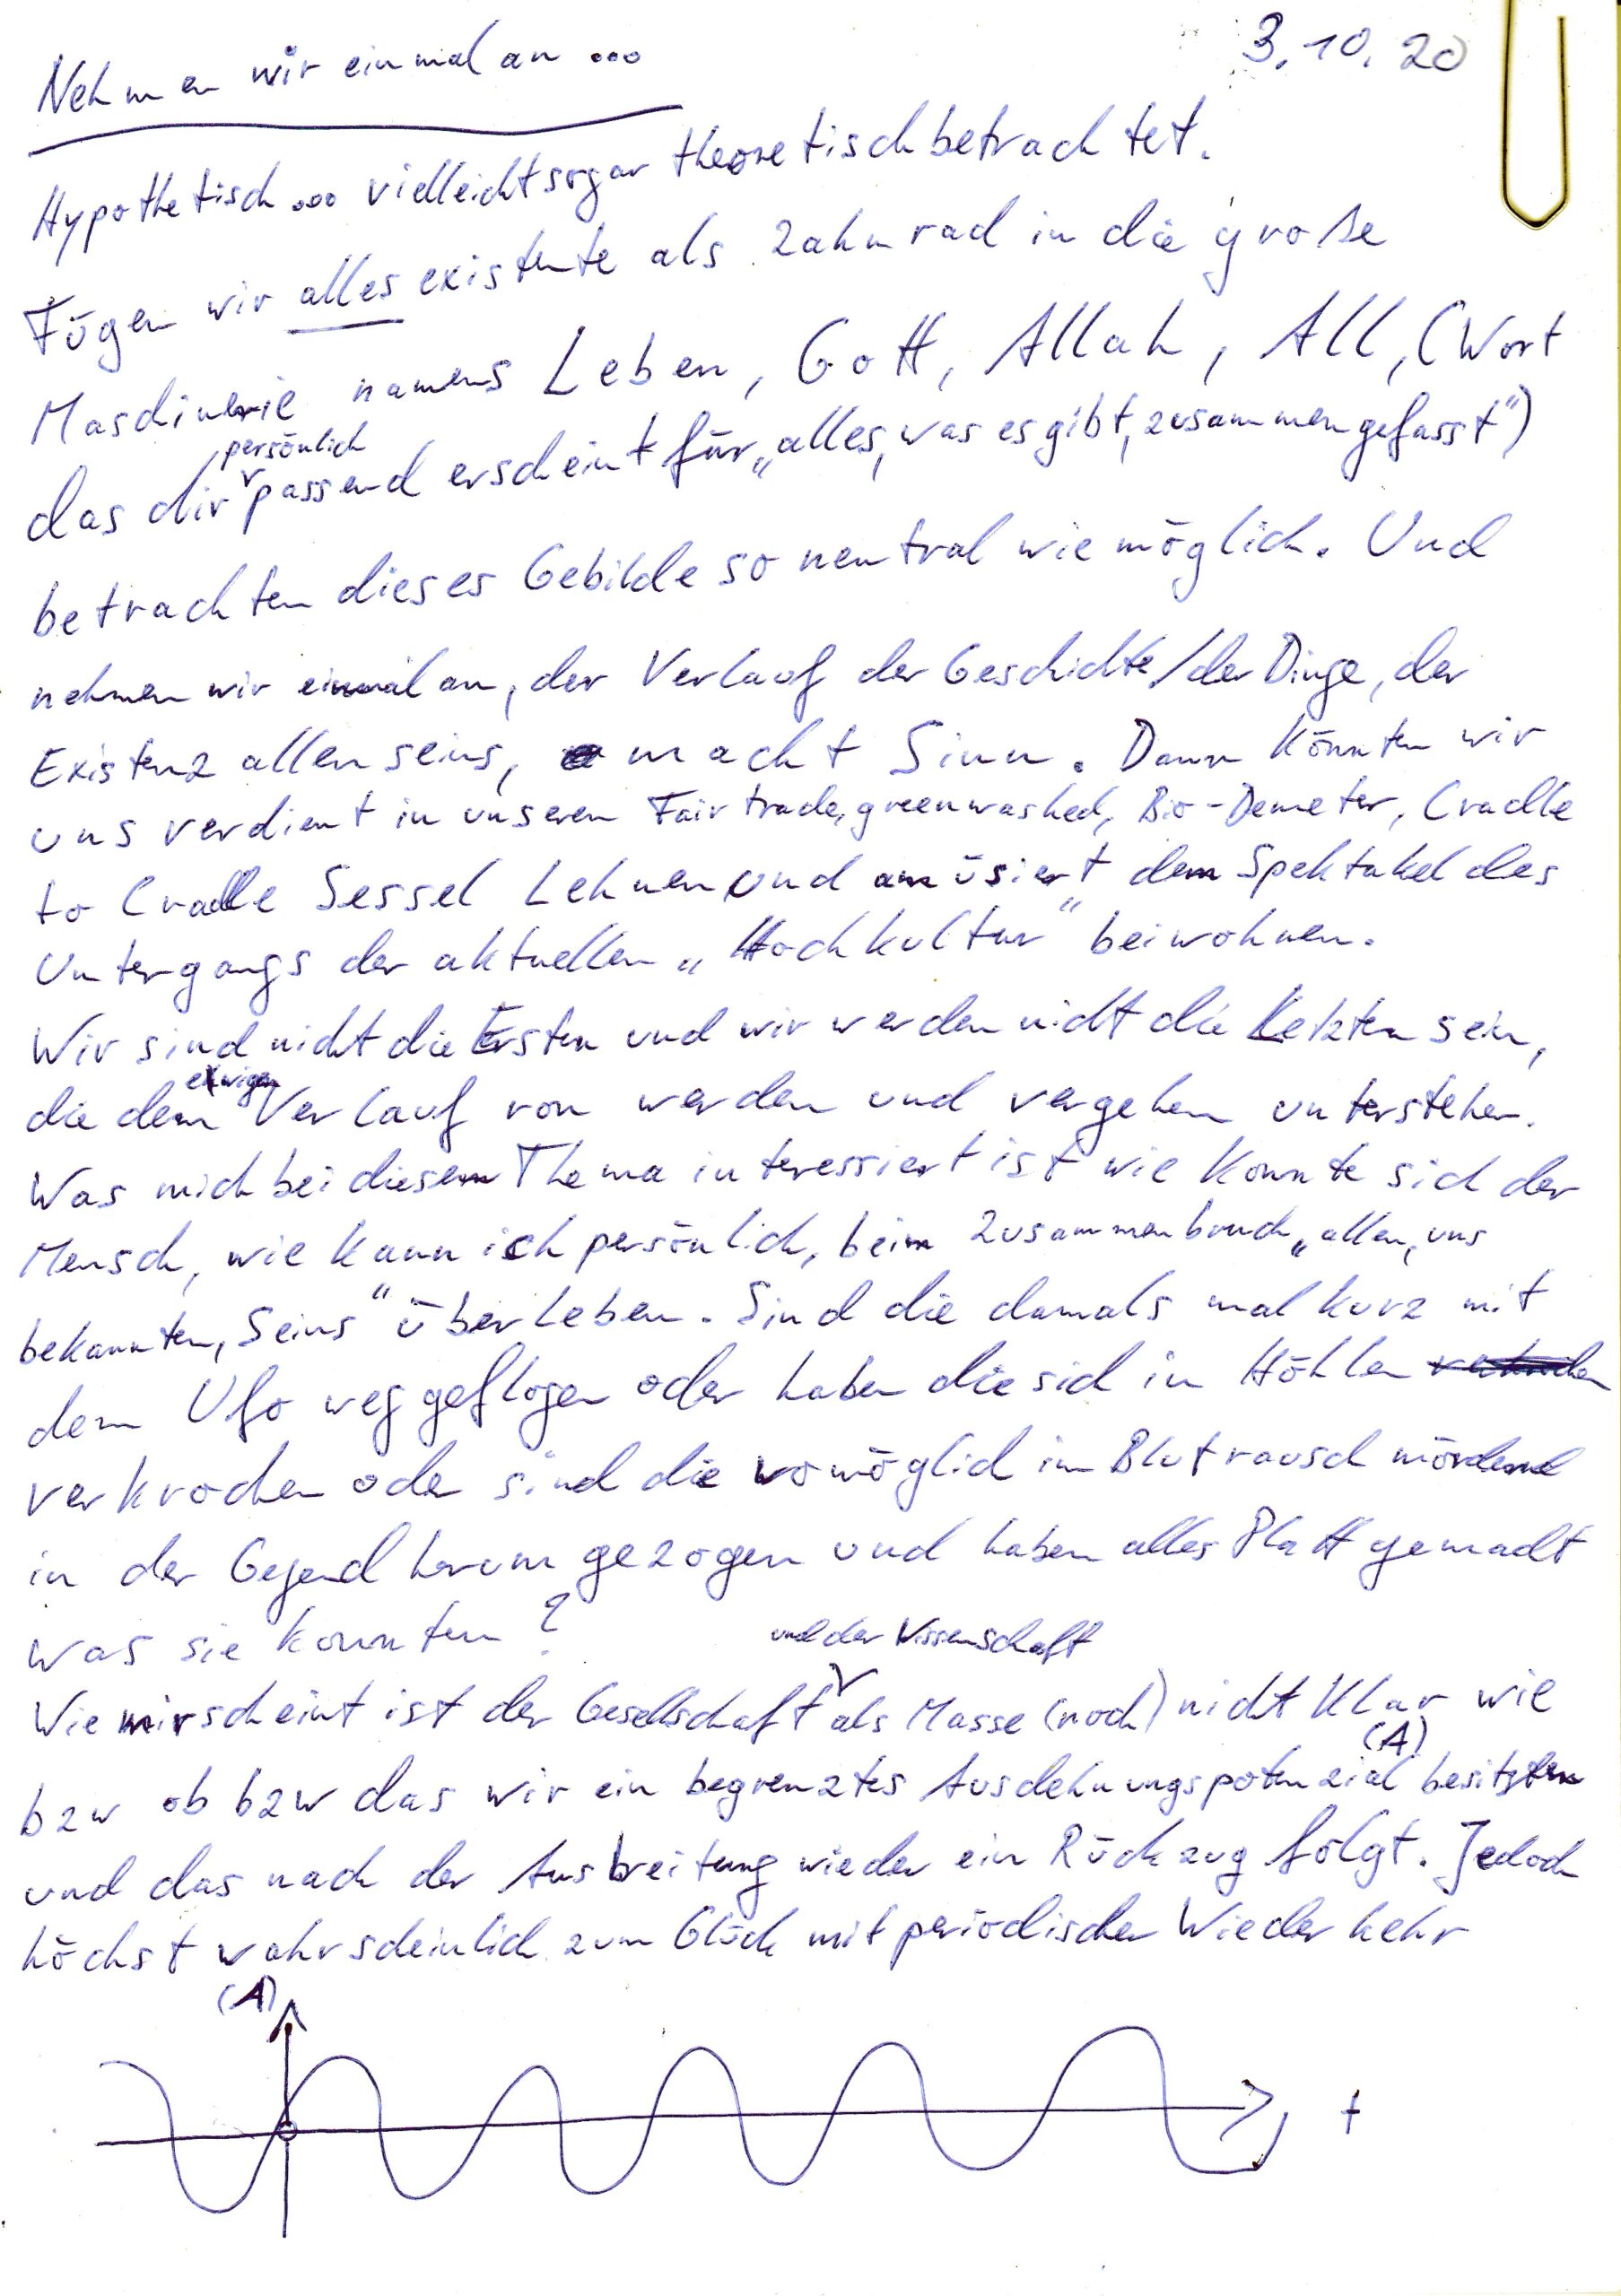 3.10.20
Nehmen wir einmal an ...
Hypothetisch ... vielleicht sogar theoretisch betrachtet.
Fügen wir alles existente als Zahnrad in die große
Maschinerie namens Leben, Gott, Allah, All, (Wort
das dir persönlich passend erscheint für „alles, was es gibt, zusammengefasst")
betrachten dieses Gebilde so neutral wie möglich. Und
nehmen wir einmal an, der Verlauf der Geschichte/der Dinge, der
Existenz allen seins, macht Sinn. Dann könnten wir
uns verdient in unseren Fairtrade, greenwashed, Bio-Demeter, Cradle
to Cradle Sessel Lehnen und amüsiert dem Spektakel des
Untergangs der aktuellen „Hochkultur" beiwohnen.
Wir sind nicht die Ersten und wir werden nicht die Letzten sein,
die dem ewigen Verlauf von werden und vergehen unterstehen.
Was mich bei diesem Thema interessiert ist wie konnte sich der
Mensch, wie kann ich persönlich, beim Zusammenbruch „allen, uns
bekannten, Seins" überleben. Sind die damals mal kurz mit
dem Ufo weggeflogen oder haben die sich in Höhlen
verkrochen oder sind die womöglich im Blutrausch mordend
in der Gegend herum gezogen und haben alles Platt gemacht
was sie konnten?
Wie mir scheint ist der Gesellschaft und der Wissenschaft als Masse (noch) nicht klar wie
bzw ob bzw das wir ein begrenztes Ausdehnungspotenzial (A) besitzen
und das nach der Ausbreitung wieder ein Rückzug folgt. Jedoch
höchst wahrscheinlich zum Glück mit periodischer Wiederkehr
(A)
t